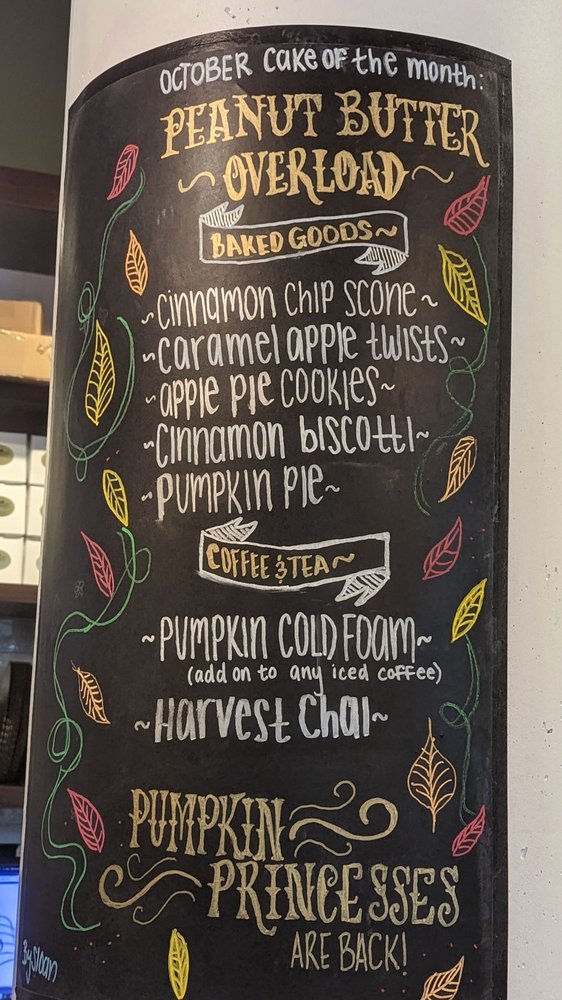 OCTOBER cake of the month:
PEANUT BUTTER
~OVERLOAD~
BAKED GOODS~
~cinnamon chip scone~
~caramel apple twists~
~apple pie cookies~
~cinnamon biscotti~
~pumpkin pie~
COFFEE & TEA~
~PUMPKIN COLD FOAM~
(add on to any iced coffee)
~Harvest Chai~
PUMPKIN
PRINCESSES
ARE BACK!
By Sloan